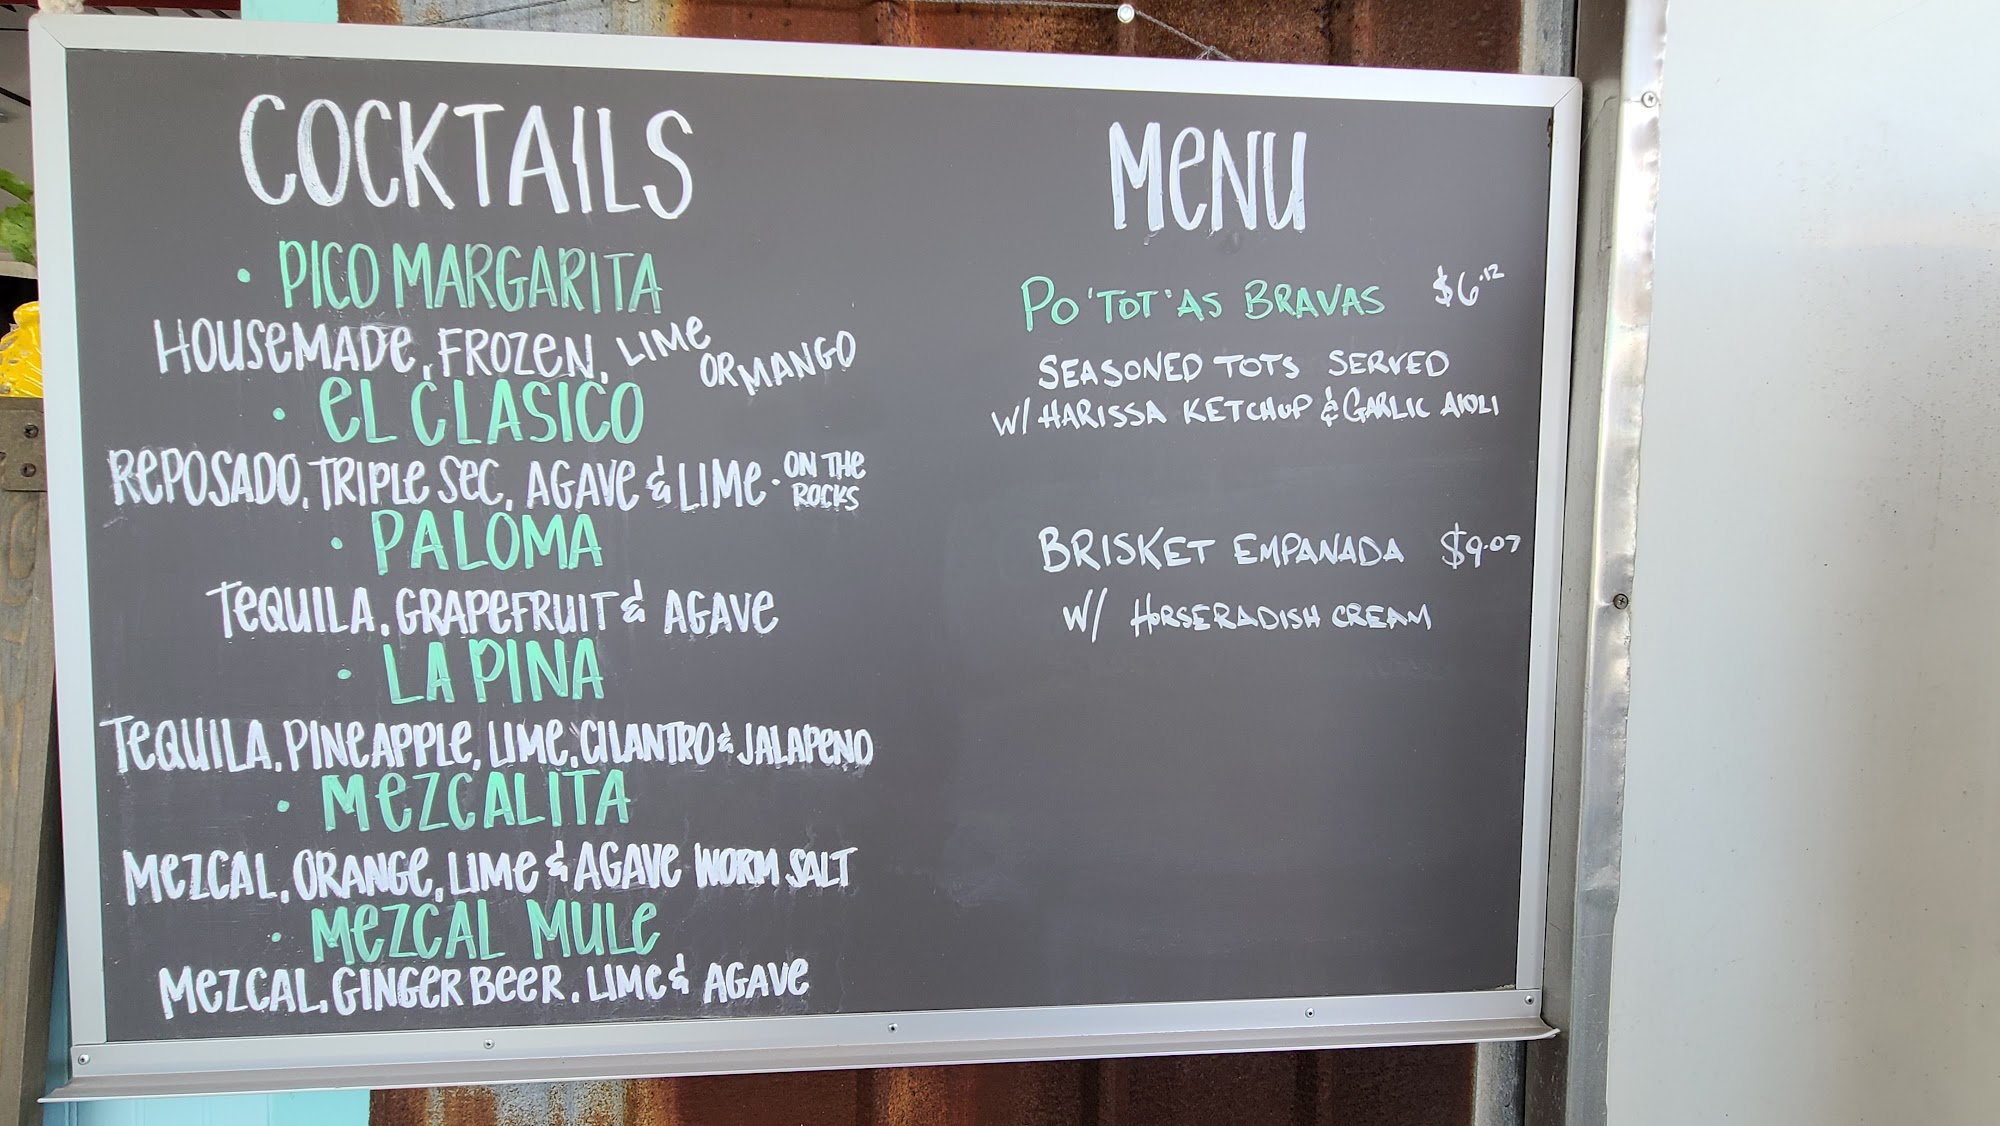 COCKTAILS
• PICO MARGARITA
HOUSEMADE, FROZEN, LIME OR MANGO
• EL CLASICO
REPOSADO, TRIPLE SEC, AGAVE & LIME • ON THE ROCKS
• PALOMA
TEQUILA, GRAPEFRUIT & AGAVE
• LA PINA
TEQUILA, PINEAPPLE, LIME, CILANTRO & JALAPENO
• MEZCALITA
MEZCAL, ORANGE, LIME & AGAVE WORM SALT
• MEZCAL MULE
MEZCAL, GINGER BEER, LIME & AGAVE
MENU
PO'TOT'AS BRAVAS $6.12
SEASONED TOTS SERVED
W/ HARISSA KETCHUP & GARLIC AIOLI
BRISKET EMPANADA $9.07
W/ HORSERADISH CREAM